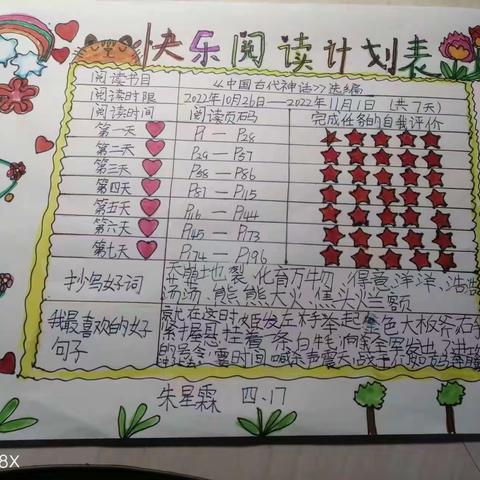 快乐阅读计划表
阅读书目 《中国古代神话》选编
阅读时限 2022年10月26日——2022年11月1日 (共7天)
阅读时间 阅读页码 完成任务的自我评价
第一天 P1 — P28
第二天 P29 — P57
第三天 P58 — P86
第四天 P87 — P115
第五天 P116 — P144
第六天 P145 — P173
第七天 P174 — P196
抄写好词 天崩地裂、化育万物、得意洋洋、浩浩
汤汤、熊熊大火、焦头烂额
我最喜欢的好 就在这时姬发左手举起金色大板斧右手
句子 紧握悬挂着一条白牦
霎时间喊杀声震天
朱星霖 四、17
8X